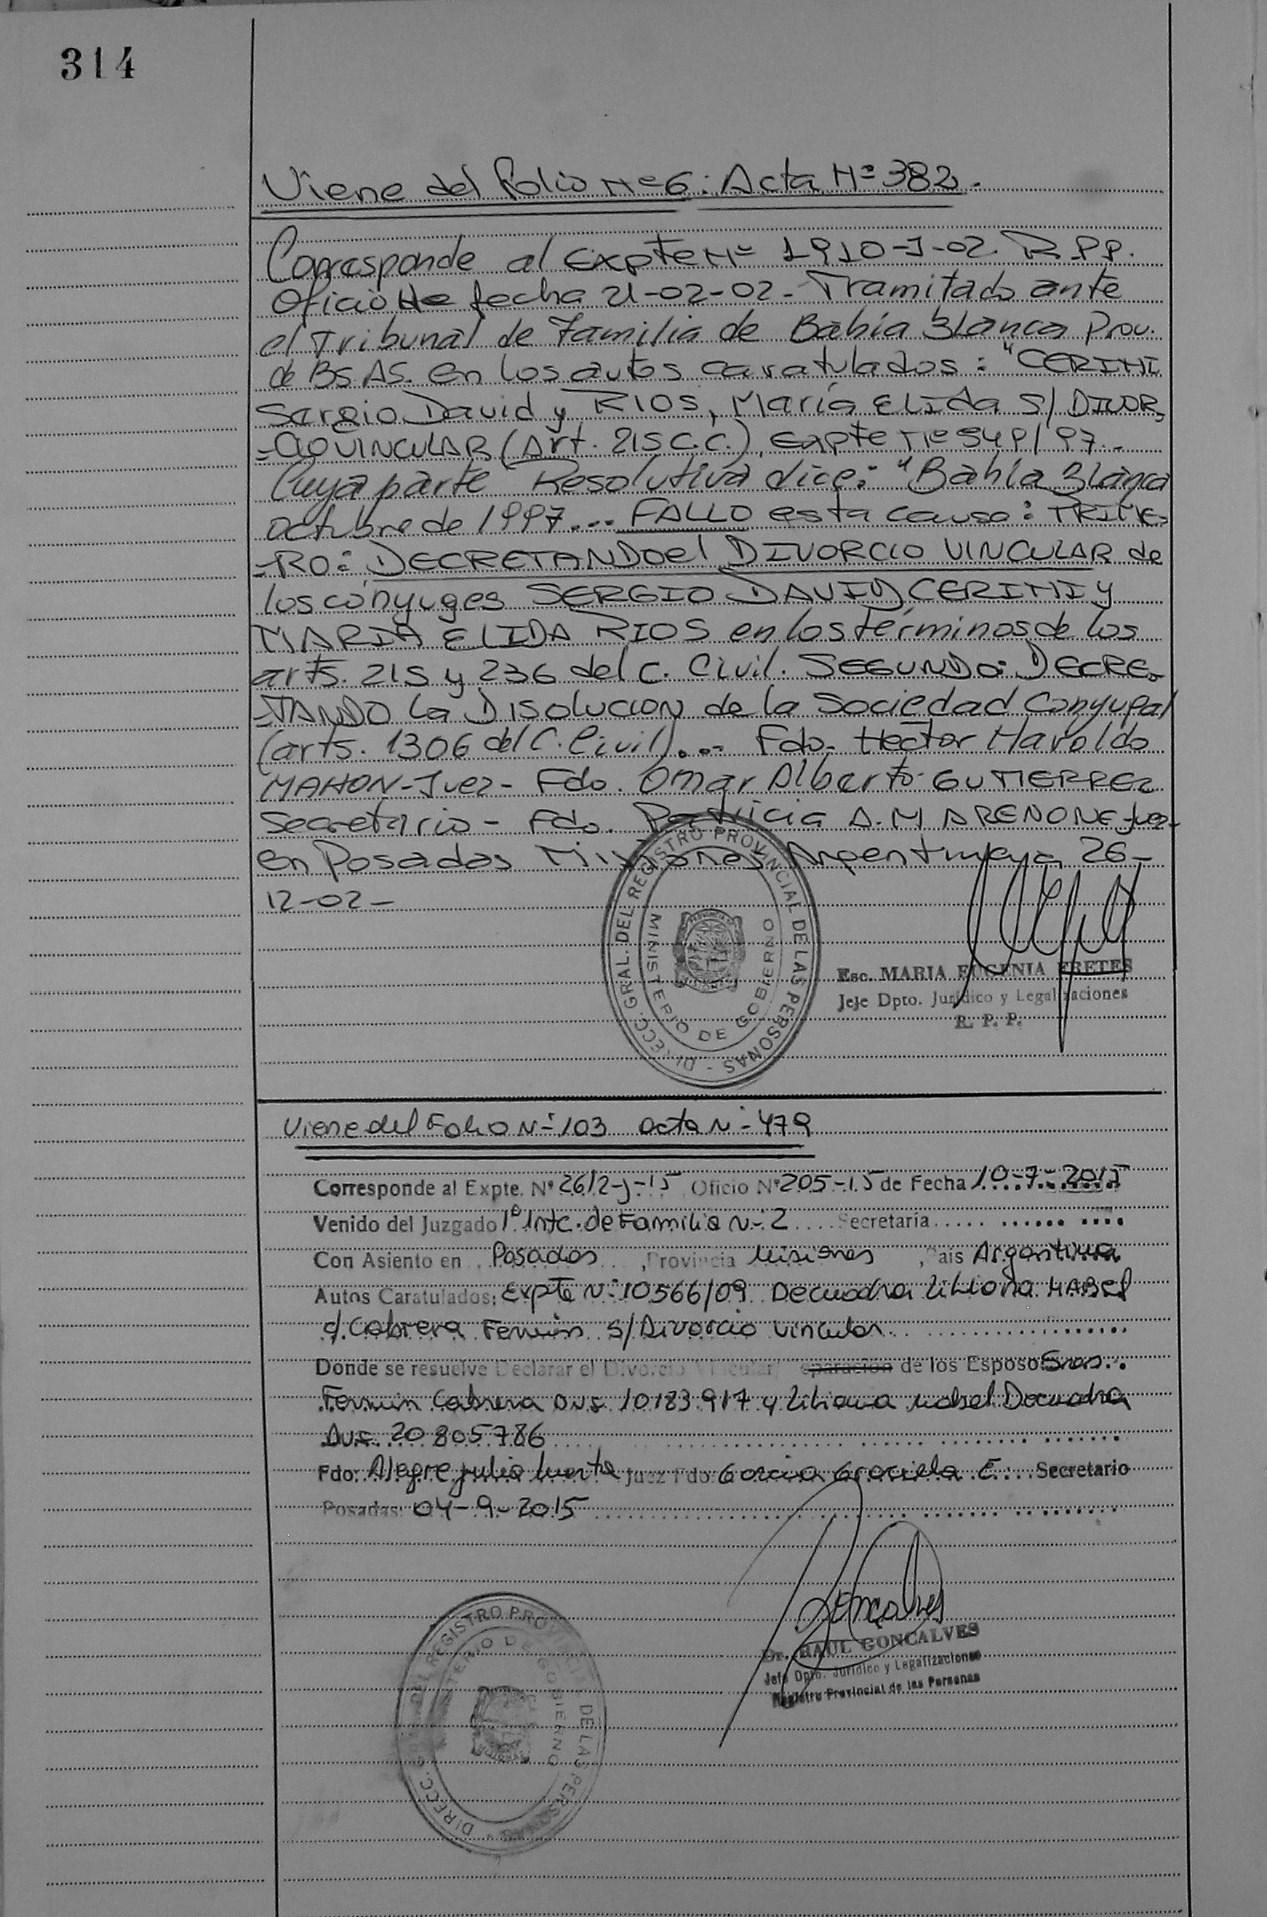 314
Viene del folio Nº 6: Acta Nº 382.
Corresponde al Expte Nº 1910-J-02. R.P.P.
Oficio de fecha 21-02-02- Tramitado ante
el Tribunal de Familia de Bahía Blanca Prov.
de Bs As. en los autos caratulados: "CERINI
Sergio David y RIOS, María ELIDA S/ DIVOR_
=CIO VINCULAR (Art. 215 C.C.), Expte Nº 549/97.-
Cuya parte Resolutiva dice: "Bahía Blanca
octubre de 1997... FALLO esta causa: PRIME=
=RO: DECRETANDO el DIVORCIO VINCULAR de
los cónyuges SERGIO DAVID CERINI y
MARIA ELIDA RIOS en los términos de los
arts. 215 y 236 del C. Civil. SEGUNDO: DECRE_
=TANDO La Disolucion de la Sociedad Conyugal
(arts. 1306 del C. Civil)... Fdo. Hector Haroldo
MAHON-Juez- Fdo. Omar Alberto GUTIERREZ
Secretario- Fdo. Patricia A. MARENONE Juez
en Posadas Misiones Argentina a 26-
12-02-
DIRECC. GRAL. DEL REGISTRO PROVINCIAL DE LAS PERSONAS -
MINISTERIO DE GOBIERNO
Esc. MARIA EUGENIA FRETES
Jefe Dpto. Jurídico y Legalizaciones
R. P. P.
Viene del Folio Nº 103 acta Nº 479
Corresponde al Expte. Nº 2612-J-15 Oficio Nº 205-15 de Fecha 10-7-2015
Venido del Juzgado 1º Intc. de Familia Nº 2 Secretaria
Con Asiento en Posadas, Provincia Misiones, País Argentina
Autos Caratulados: Expte Nº 10566/09 Decuadra Liliana MABEL
c/ Cabrera Fermin s/ Divorcio vincular
Donde se resuelve Declarar el Divorcio Vincular/ eparación de los Esposo Sres.
Fermin Cabrera DNI 10183917 y Liliana Mabel Decuadra
DNI 20805786
Fdo: Alegre Julia Juez Fdo: Garcia Graciela E. Secretario
Posadas: 04-9-2015
Goncalves
Dr. RAUL GONCALVES
Jefe Dpto. Jurídico y Legalizaciones
Registro Provincial de las Personas
DIRECC. REGISTRO PROVINCIAL DE LAS PERSONAS -
MINISTERIO DE GOBIERNO